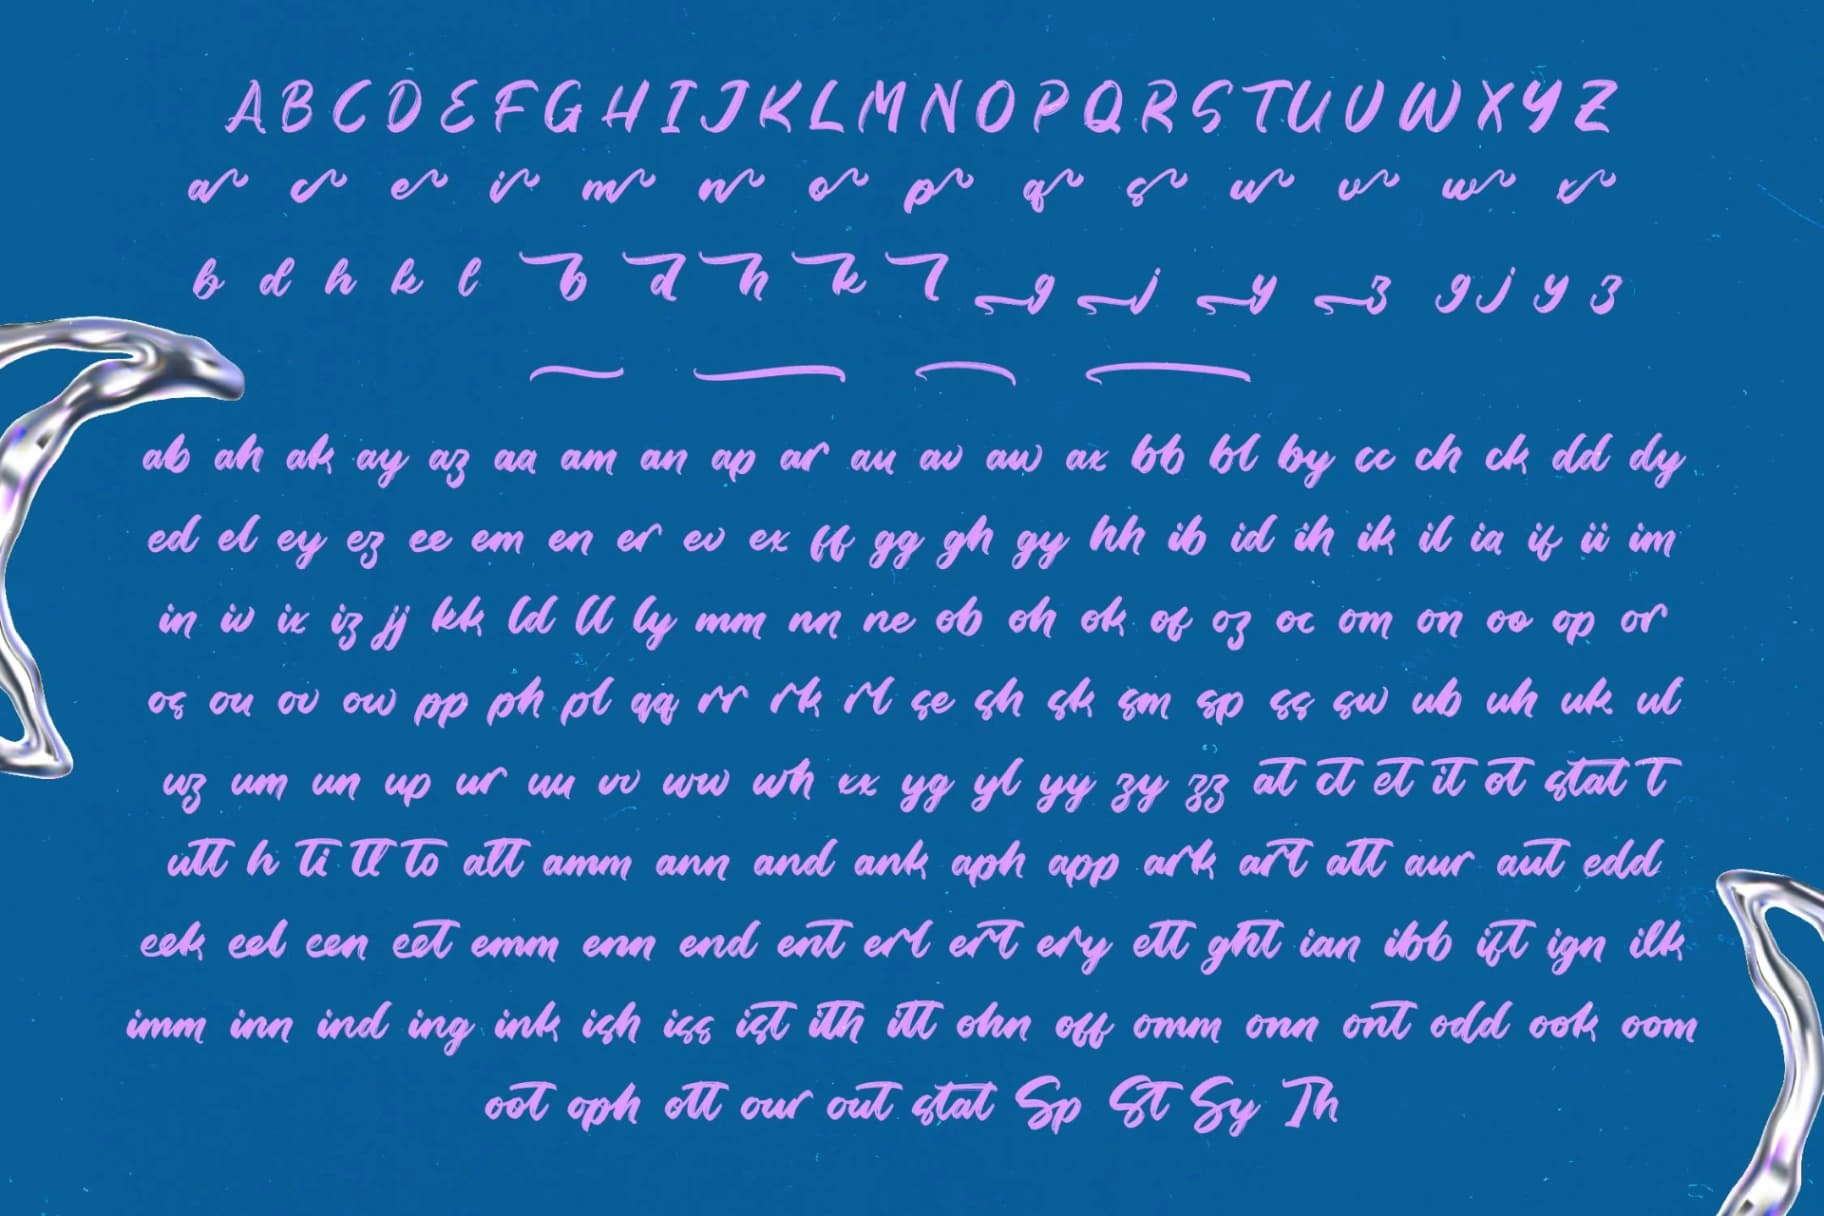 A B C D E F G H I J K L M N O P Q R S T U U W X Y Z
a c e i m n o p q s u v w x
b d h k l b d h k l g j y z g j y z
ab ah ak ay az aa am an ap ar au av aw ax bb bl by cc ch ck dd dy
ed el ey ez ee em en er ev ex ff gg gh gy hh ib id ih ik il ia if ii im
in iv ix iz jj kk ld ll ly mm nn ne ob oh ok of oz oc om on oo op or
os ou ov ow pp ph pl qq rr rk rl se sh sk sm sp ss sw ub uh uk ul
uz um un up ur uu vv ww wh xx yg yl yy zy zz at ct et it ot stat t
utt h ti tl to alt amm ann and ank aph app ark art att aur aut edd
eek eel een eet emm enn end ent erl ert ery ett ght ian ibb ift ign ilk
imm inn ind ing ink ish iss ist ith itt ohn off omm onn ont odd ook oom
oot oph ott our out stat Sp St Sy Th